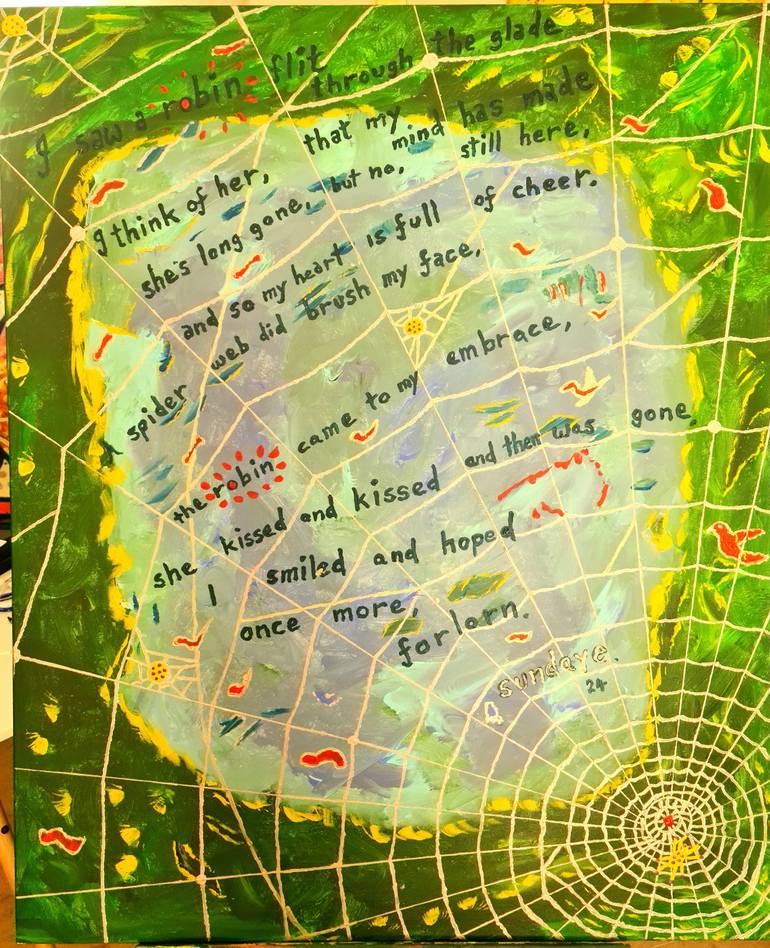 I saw a robin flit through the glade
that my mind has made
I think of her, but no, still here,
she's long gone,
and so my heart is full of cheer.
spider web did brush my face,
the robin came to my embrace,
she kissed and kissed and then was gone,
I smiled and hoped
once more, forlorn.
sundaye.
24